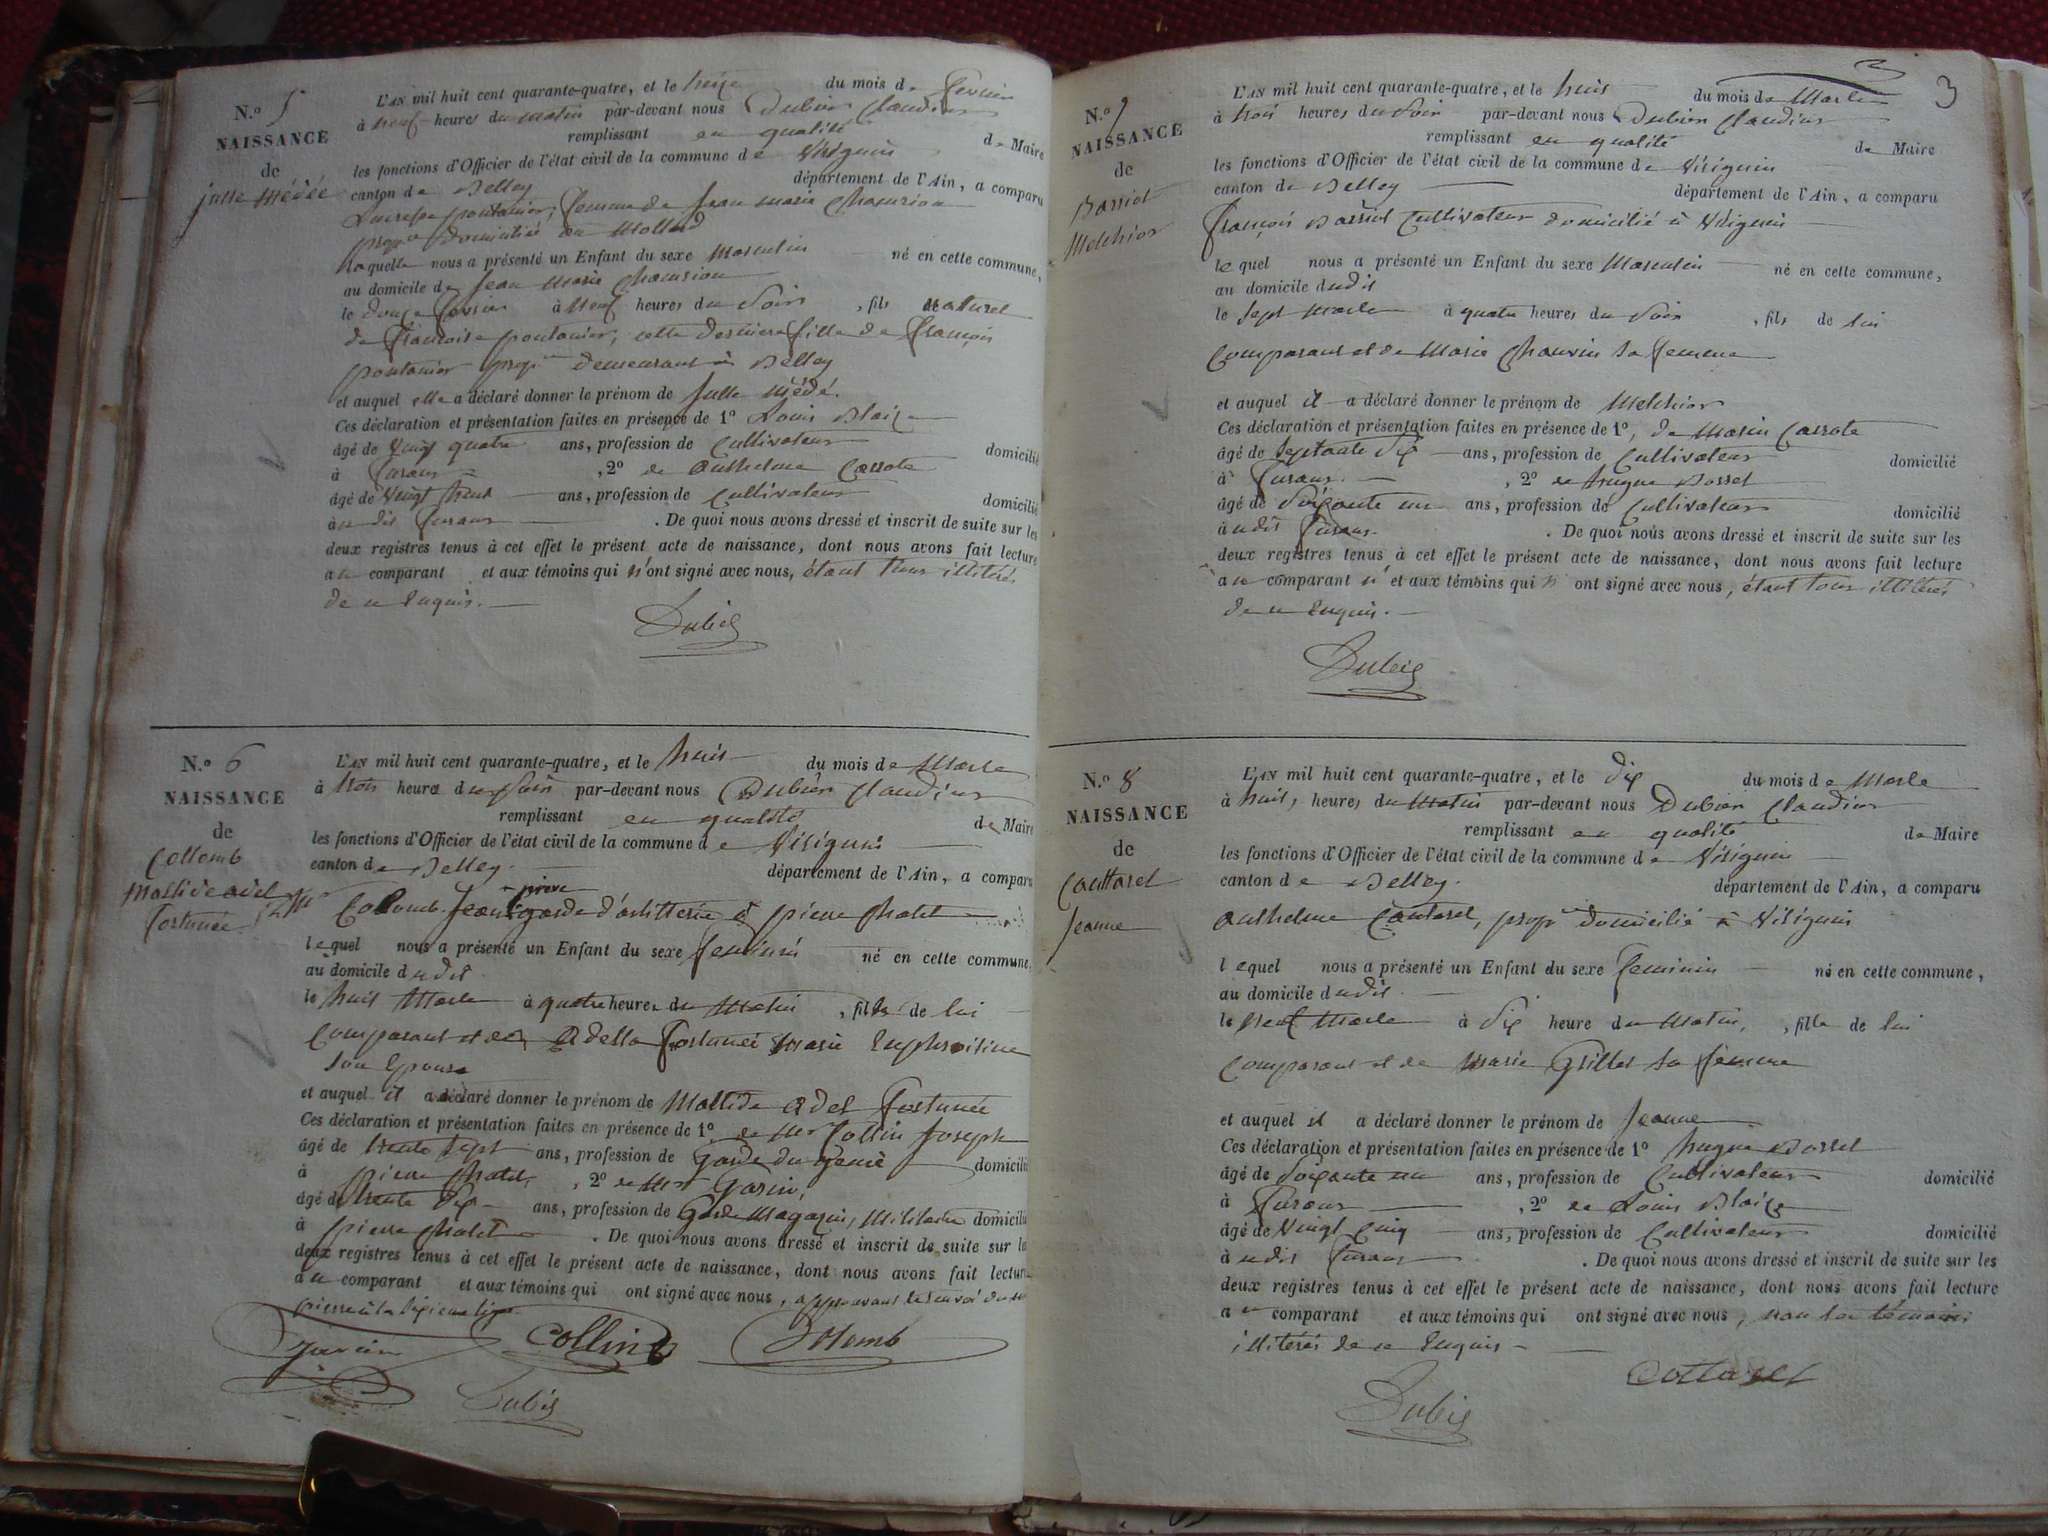 N.º 5
NAISSANCE
de
julle Médée
L'AN mil huit cent quarante-quatre, et le treize du mois de fevrier
à neuf heures du matin par-devant nous Dubier Claudius
remplissant en qualité de Maire
les fonctions d'Officier de l'état civil de la commune de Virignin
canton de Belley département de l'Ain, a comparu
pontanier, femme de Jean Marie
domiciliée au Mollard
laquelle nous a présenté un Enfant du sexe Masculin né en cette commune,
au domicile de Jean Marie
le douze fevrier à neuf heures du Soir, fils naturel
de françoise pontanier, cette derniere fille de françois
pontanier demeurant à Belley
et auquel elle a déclaré donner le prénom de julle Médé.
Ces déclaration et présentation faites en présence de 1º Louis Blaize
âgé de Vingt quatre ans, profession de Cultivateur domicilié
à furans, 2º de anthelme Carrote
âgé de Vingt neuf ans, profession de Cultivateur domicilié
audit furans. De quoi nous avons dressé et inscrit de suite sur les
deux registres tenus à cet effet le présent acte de naissance, dont nous avons fait lecture
au comparant et aux témoins qui n'ont signé avec nous, étant tous illitérés
de ce Enquis.
Dubie
N.º 6
NAISSANCE
de
Collomb
Matilde adel
fortunée
L'AN mil huit cent quarante-quatre, et le huit du mois de Mars
à trois heures du soir par-devant nous Dubier Claudius
remplissant en qualité de Maire
les fonctions d'Officier de l'état civil de la commune de Virignin
canton de Belley. département de l'Ain, a comparu
pierre
Colomb Jean garde d'artillerie à pierre Chatel
lequel nous a présenté un Enfant du sexe feminin né en cette commune,
au domicile dudit
le huit Mars à quatre heures du Matin, fille de lui
Comparant et de Adella fortunée Marie Euphroisine
son Epouse
et auquel il a déclaré donner le prénom de Matilde adel fortunée
Ces déclaration et présentation faites en présence de 1º de Mr Collin Joseph
âgé de trente sept ans, profession de Garde du genie domicilié
à pierre Chatel, 2º de Mr Garin,
âgé de trente Six ans, profession de Garde Magazin, Militaire domicilié
à pierre Chatel. De quoi nous avons dressé et inscrit de suite sur les
deux registres tenus à cet effet le présent acte de naissance, dont nous avons fait lecture
au comparant et aux témoins qui ont signé avec nous, approuvant le renvoi du mot
pierre à la Sixieme ligne
Collin Collomb
Dubie
3
N.º 7
NAISSANCE
de
Barriot
Melchior
L'AN mil huit cent quarante-quatre, et le huit du mois de Mars
à trois heures du Soir par-devant nous Dubier Claudius
remplissant en qualité de Maire
les fonctions d'Officier de l'état civil de la commune de Virignin
canton de Belley département de l'Ain, a comparu
françois Barriot Cultivateur domicilié à Virignin
lequel nous a présenté un Enfant du sexe Masculin né en cette commune,
au domicile dudit
le Sept Mars à quatre heures du Soir, fils de lui
Comparant et de Marie Chauvin Sa femme
et auquel il a déclaré donner le prénom de Melchior
Ces déclaration et présentation faites en présence de 1º, de Marin Carrote
âgé de Septante dix ans, profession de Cultivateur domicilié
à furans, 2º de hugue Bosset
âgé de Soixante un ans, profession de Cultivateur domicilié
audit furans. De quoi nous avons dressé et inscrit de suite sur les
deux registres tenus à cet effet le présent acte de naissance, dont nous avons fait lecture
au comparant n' et aux témoins qui n' ont signé avec nous, étant tous illitérés
de ce Enquis.
Dubie
N.º 8
NAISSANCE
de
Cauttarel
Jeanne
L'AN mil huit cent quarante-quatre, et le dix du mois de Mars
à huit, heures du Matin par-devant nous Dubier Claudius
remplissant en qualité de Maire
les fonctions d'Officier de l'état civil de la commune de Virignin
canton de Belley. département de l'Ain, a comparu
anthelme Cautarel, domicilié à Virignin
lequel nous a présenté un Enfant du sexe feminin né en cette commune,
au domicile dudit
le Neuf Mars à dix heure du Matin, fille de lui
Comparant et de Marie Grillet Sa femme
et auquel il a déclaré donner le prénom de Jeanne
Ces déclaration et présentation faites en présence de 1º hugue Bosset
âgé de Soixante un ans, profession de Cultivateur domicilié
à furans, 2º de Louis Blaize
âgé de Vingt Cinq ans, profession de Cultivateur domicilié
audit furans. De quoi nous avons dressé et inscrit de suite sur les
deux registres tenus à cet effet le présent acte de naissance, dont nous avons fait lecture
au comparant et aux témoins qui ont signé avec nous, non les témoins
illitérés de ce Enquis
Cottarel
Dubie